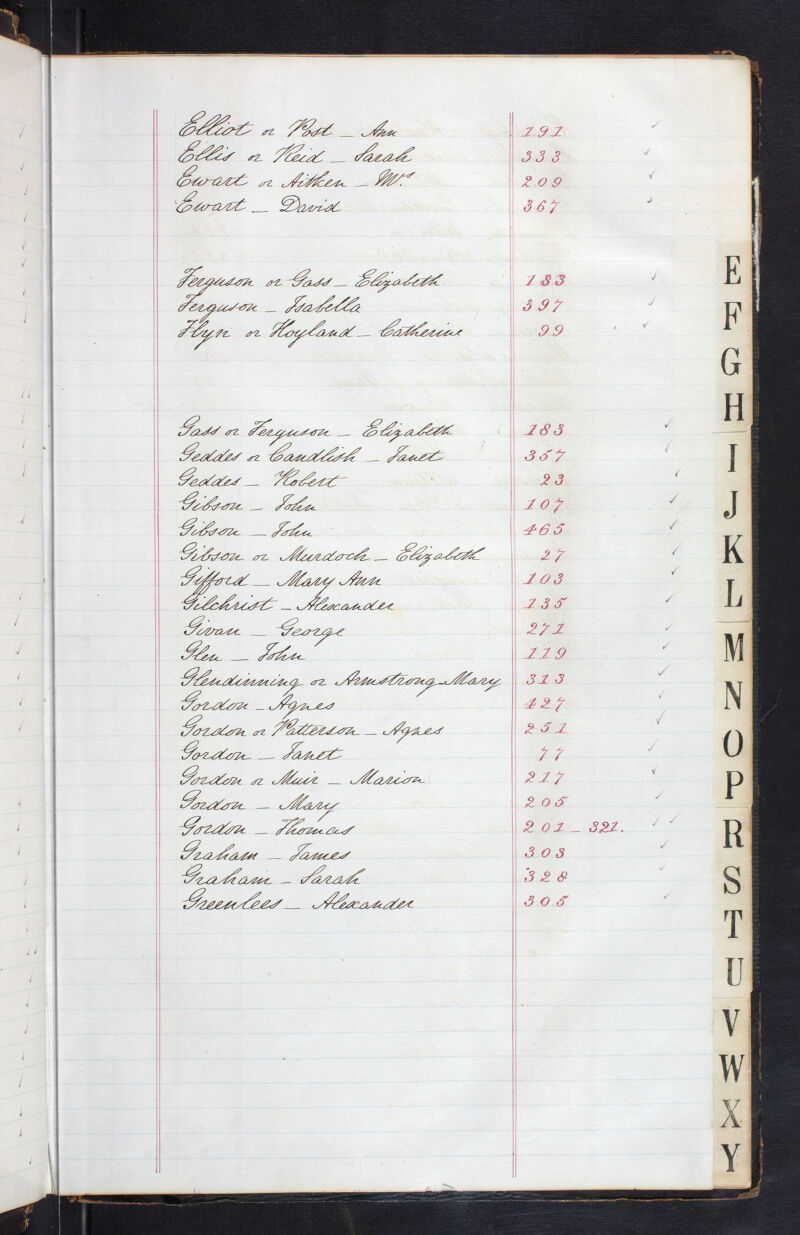 Elliot or Post - Ann 191
Ellis or Reid - Sarah 333
Ewart or Aitken - Mrs 209
Ewart - David 367
Ferguson or Gass - Elizabeth 183
Ferguson - Isabella 397
Flyn or Hoyland - Catherine 99
Gass or Ferguson - Elizabeth 183
Geddes or Candlish - Janet 357
Geddes - Robert 23
Gibson - John 107
Gibson - John 465
Gibson or Murdoch - Elizabeth 27
Gifford - Mary Ann 103
Gilchrist - Alexander 135
Givan - George 271
Glen - John 119
Glendinning or Armstrong - Mary 313
Gordon - Agnes 427
Gordon or Patterson - Agnes 251
Gordon - Janet 77
Gordon or Muir - Marion 217
Gordon - Mary 205
Gordon - Thomas 201 - 321.
Graham - James 303
Graham - Sarah 328
Greenlees - Alexander 305
E
F
G
H
I
J
K
L
M
N
O
P
R
S
T
U
V
W
X
Y